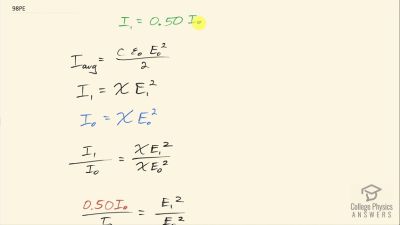 98PE
I₁ = 0.50 I₀
I_avg = c ε₀ E₀² / 2
I₁ = χ E₁²
I₀ = χ E₀²
I₁ / I₀ = χ E₁² / χ E₀²
0.50 I₀ / I = E₁² / E₀²
College Physics
ANSWERS